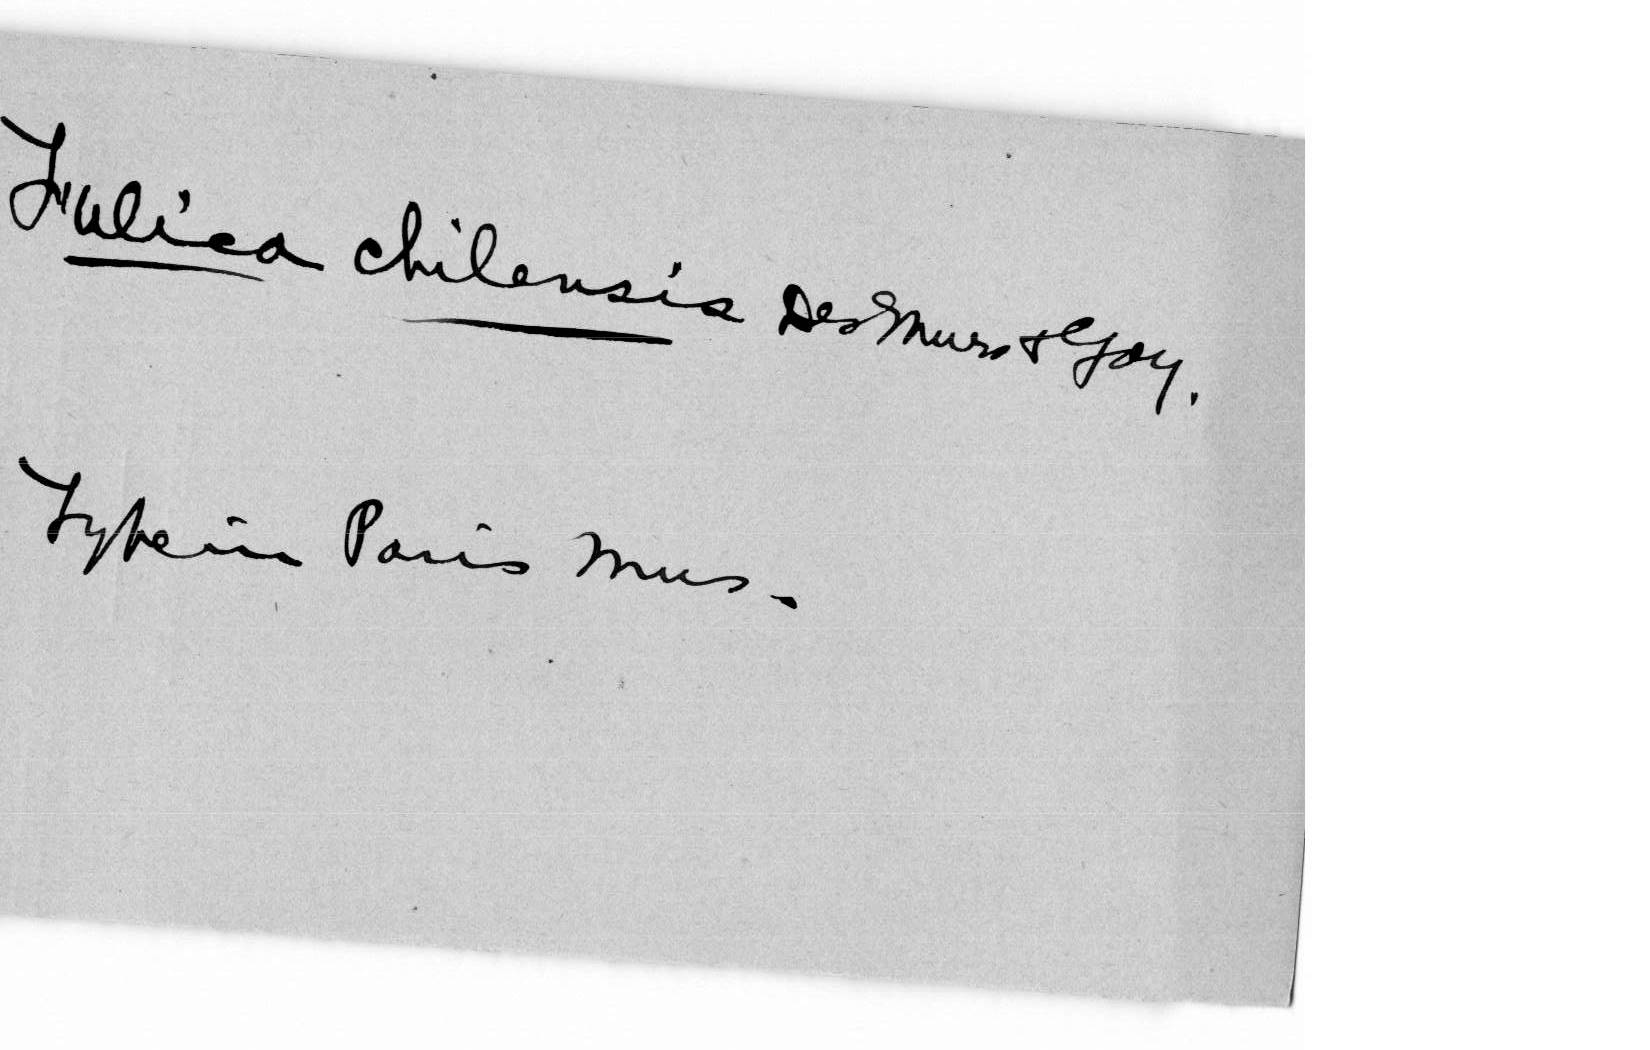 Fulica chilensis Des Murs & Gay.
Type in Paris Mus.